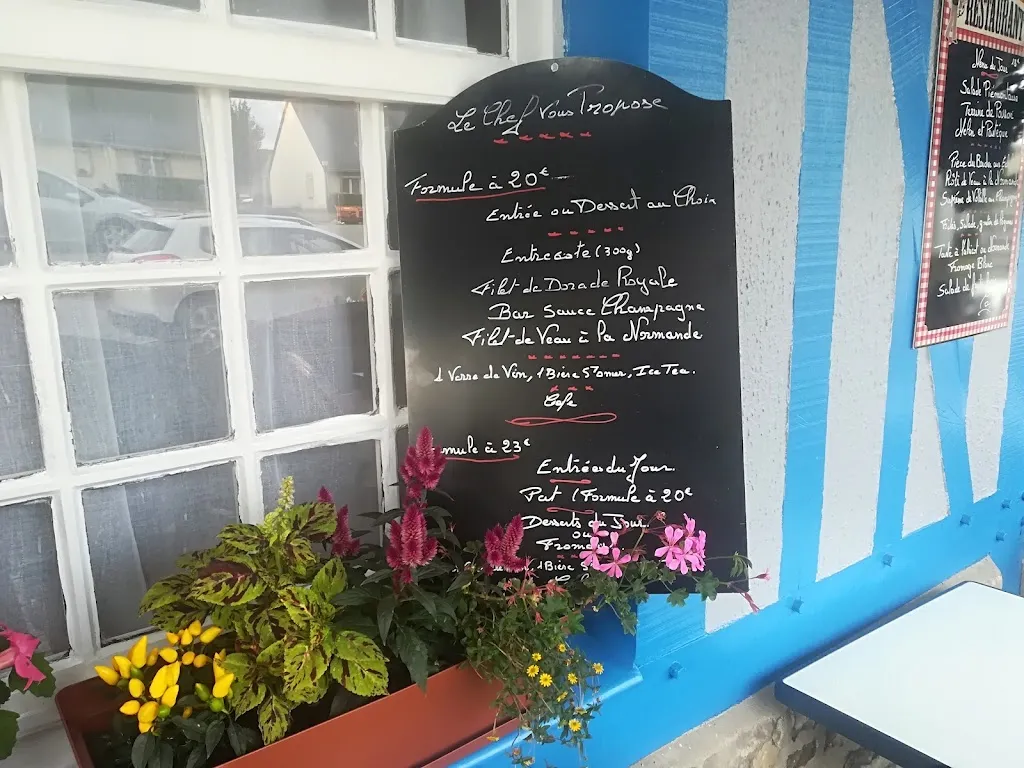 Le Chef Vous Propose
Formule à 20€
Entrée ou Dessert au Choix
Entrecote (300g)
Filet de Dorade Royale
Bar Sauce Champagne
Filet de Veau à la Normande
1 Verre de Vin, 1 Bière St omer, Ice Tea.
Cafe
mule à 23€
Entrées du Jour
Plat (Formule à 20€
Desserts du Jour
ou
Froma
1 Bière S
RESTAURANT
Menu du Jour
Salade Piémontaise
Terrine de Poisson
Melon et Pastèque
Pièce du Boucher
Rôti de Veau à la Normande
Suprême de Volaille au
Frites, Salade, gratin de
Tarte à l'abricot ou
Fromage Blanc
Salade de